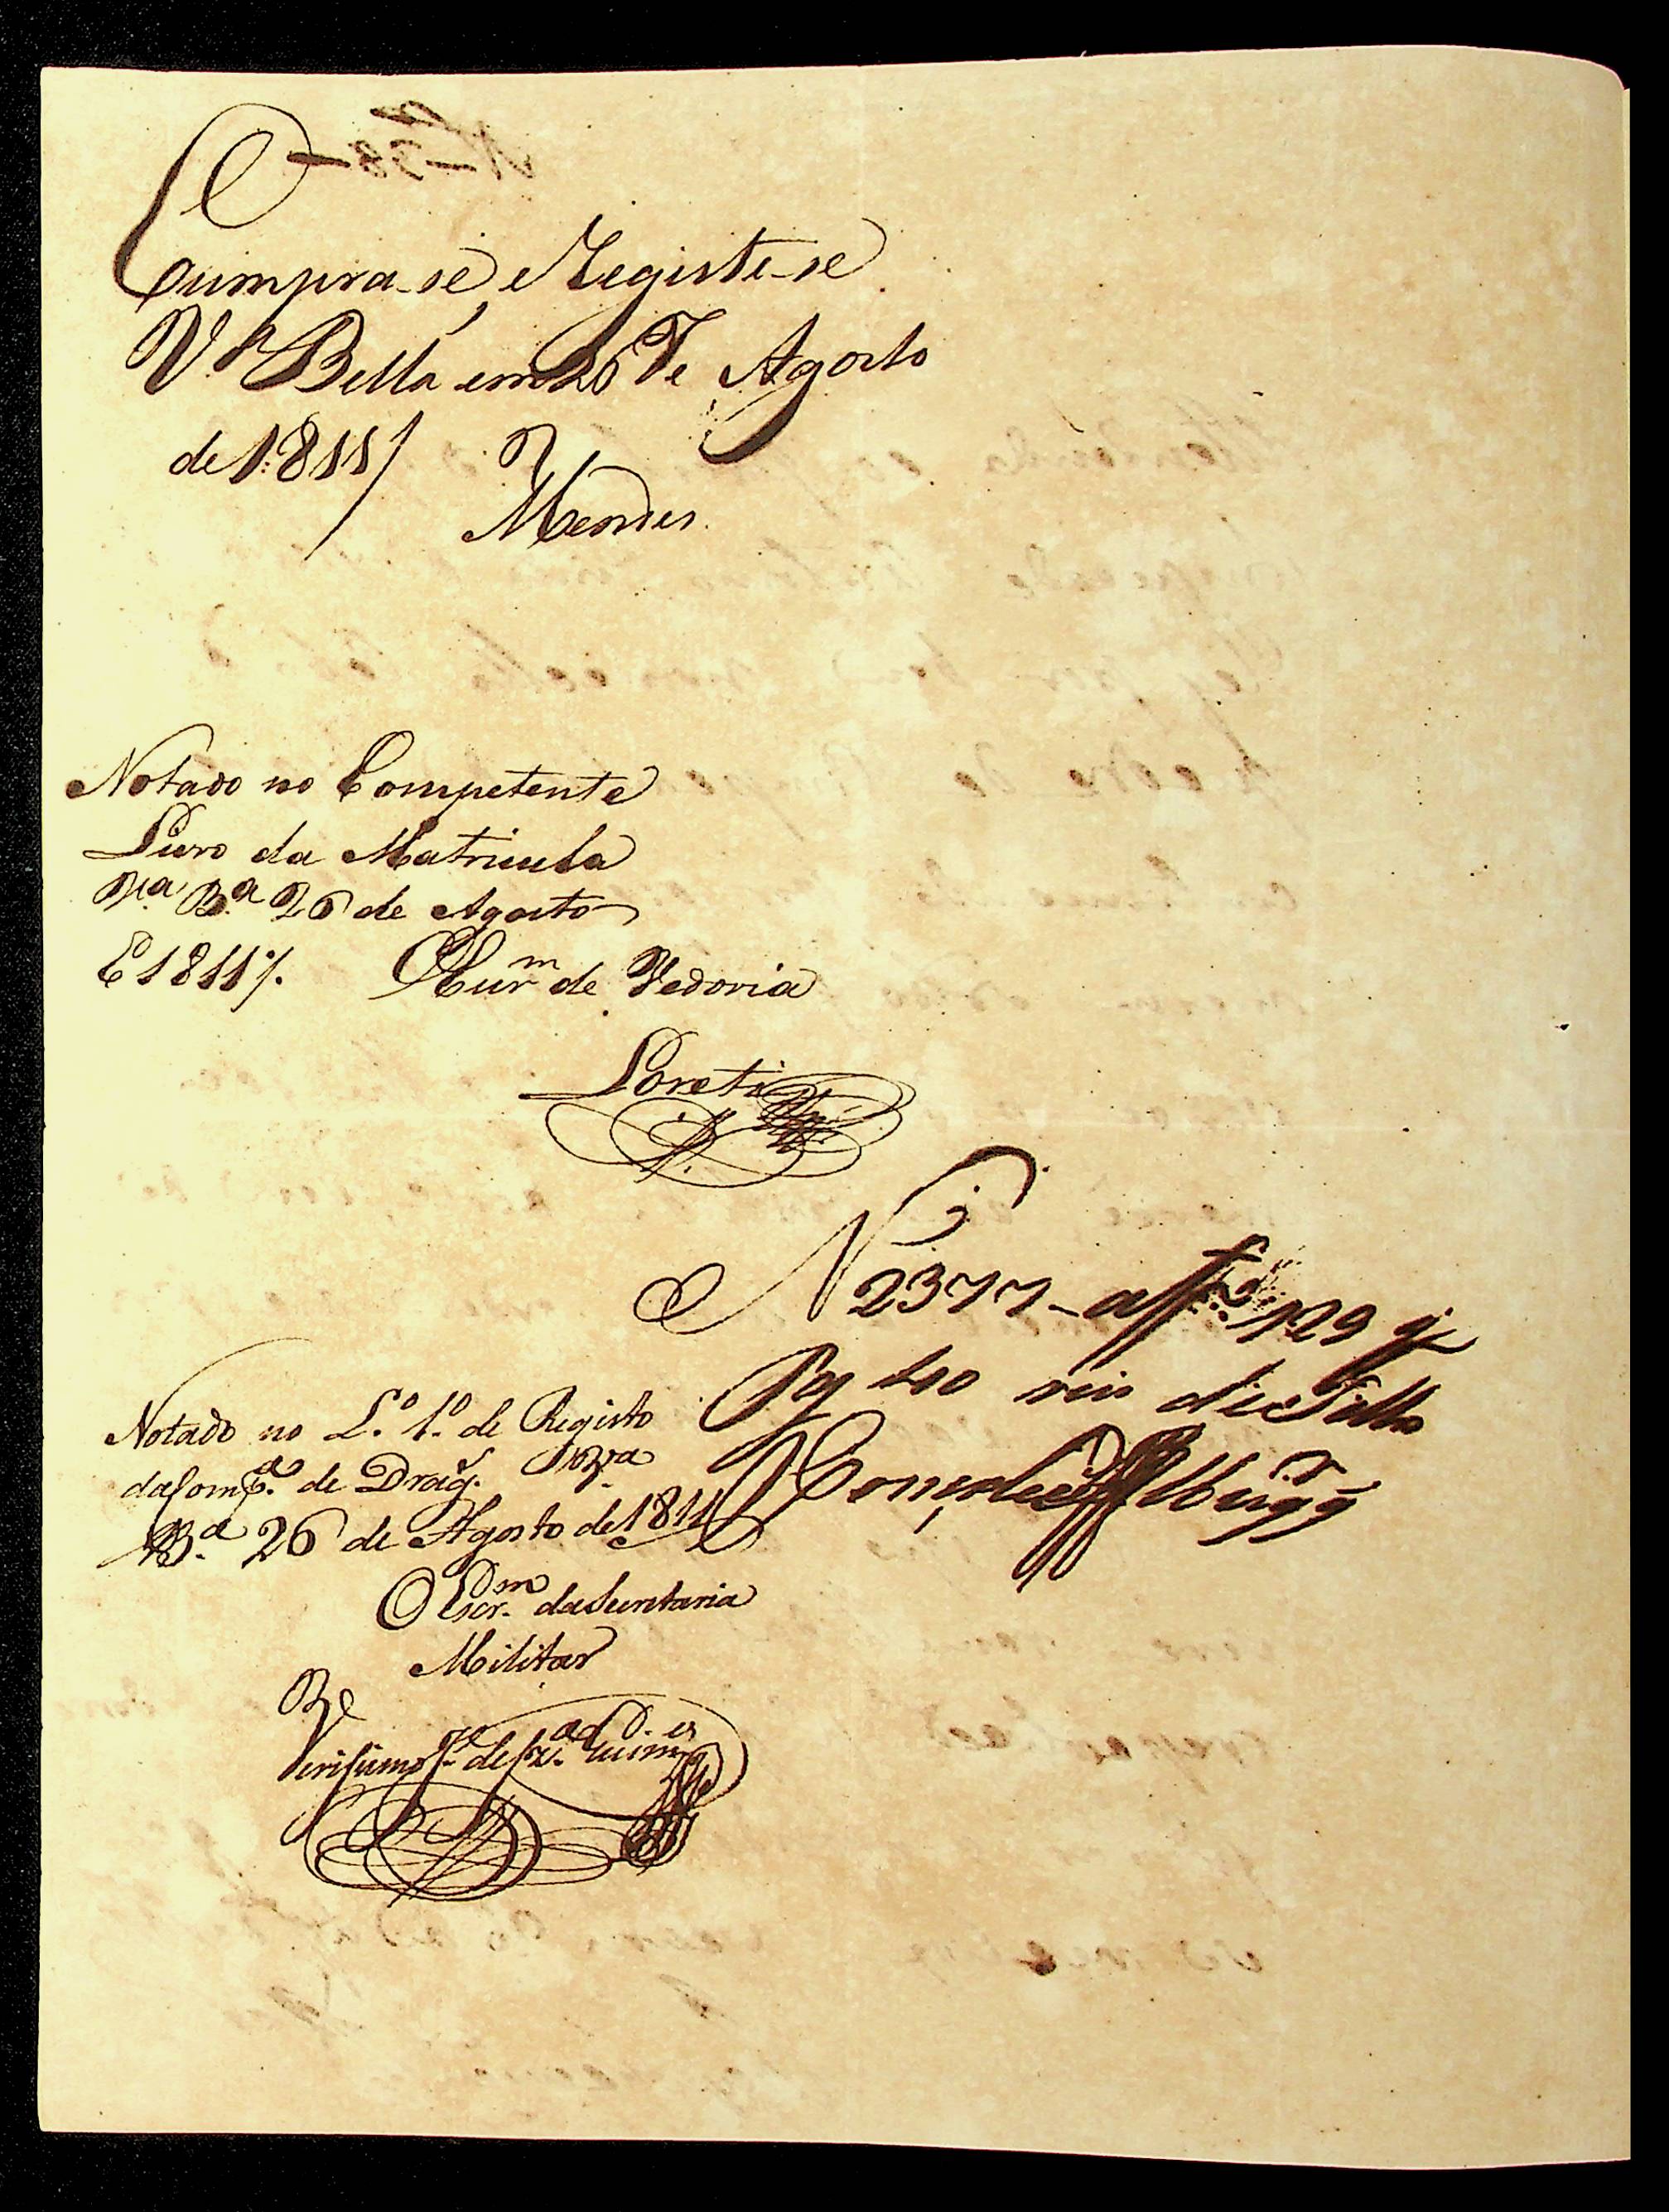 Cumpra-se, e Registe-se
V.ª Bella em 26 de Agosto
de 1811/
Mendes.
Notado no Competente
Livro da Matricula
V.ª B.ª 26 de Agosto
de 1811/.
de Vedoria
Loreti
N 2377 - a f 129
Pg 40 reis de Sello
Notado no L.º 1.º de Registo
da Comp.ª de Drag.
B.ª 26 de Agosto de 1811
O Escr.m da Secretaria
Militar